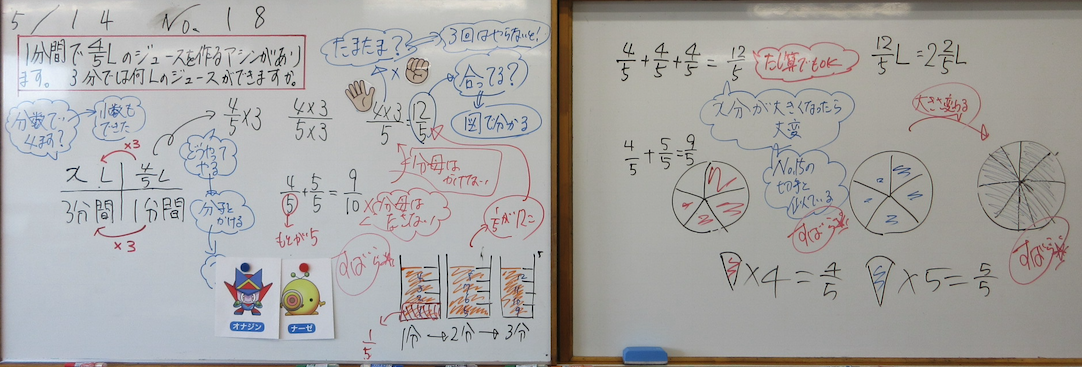 5/14 No.18
1分間で4/5Lのジュースを作るマシンがあり
ます。3分では何Lのジュースができますか。
たまたま?
3回はやらないと!
合ってる?
図で分かる
分数で…
小数も
できた
どうやって
やる
分子と
かける
×3
x L 4/5 L
3分間 1分間
×3
4/5×3
4×3/5×3
4×3/5=12/5
×
分母は
かけてない
4/5+5/5=9/10
×分母は
たさない!
もとが5
1/5が12こ
すばらしい
オナジン
ナーゼ
1/5
1分→2分→3分
4/5+4/5+4/5=12/5
たし算でもOK
12/5L=2 2/5L
分が大きくなったら
大変
大きさ変わる
4/5+5/5=9/5
No.15の
切手と
似ている
すばらしい
すばらしい
×4=4/5
×5=5/5